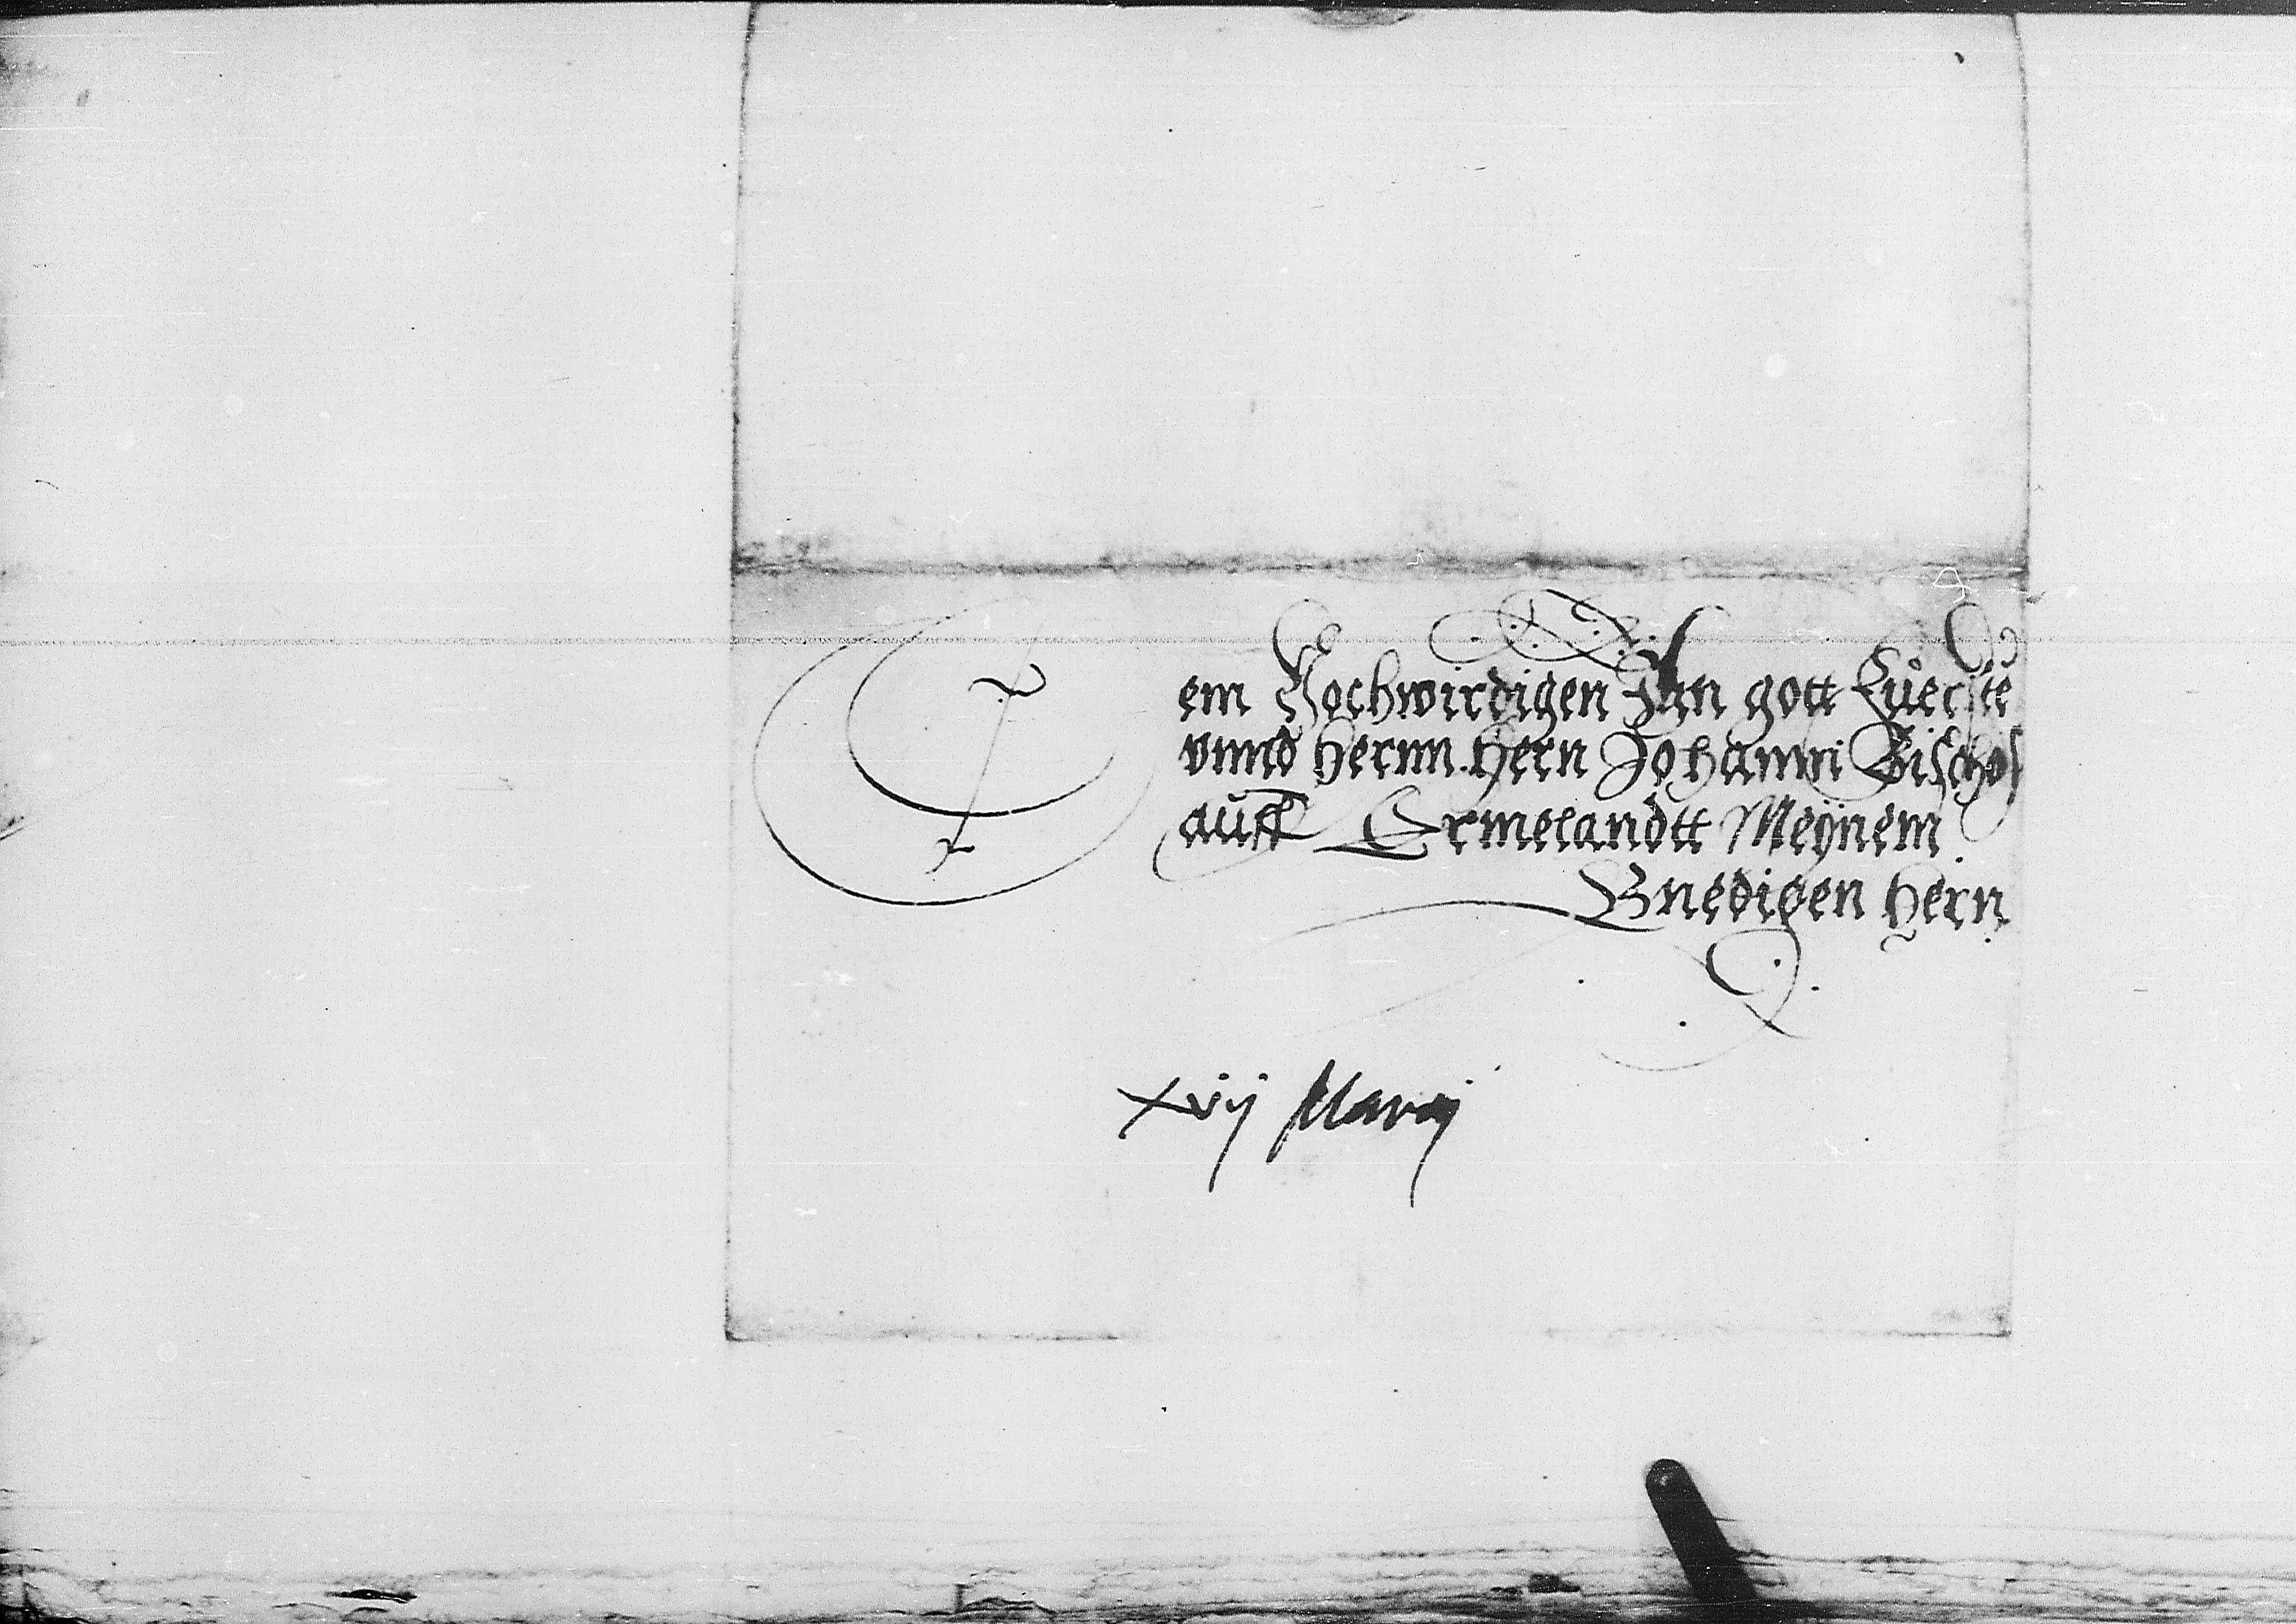 Dem Hochwirdigen Jnn gott Fuerste
vnnd Hernn Hern Johanni Bischof
auff Ermelandtt Meÿnem
Gnedigen Hern
xvij Marcij